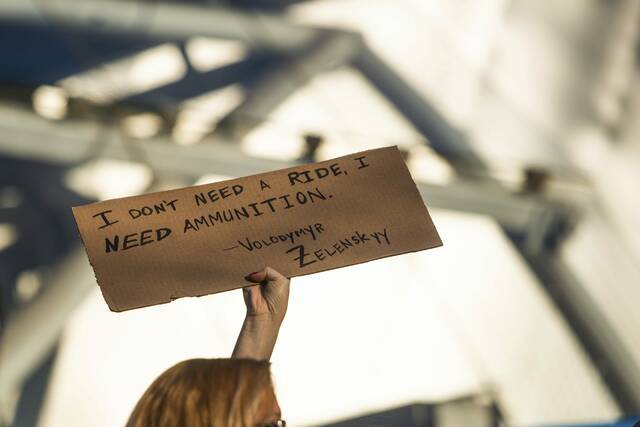 I DON'T NEED A RIDE, I
NEED AMMUNITION.
-VOLODYMYR
ZELENSKYY